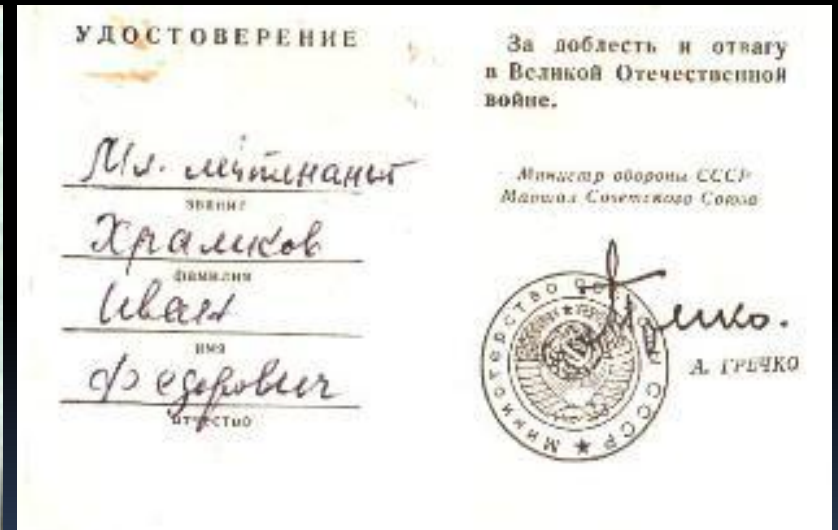 УДОСТОВЕРЕНИЕ
Мл. лейтенант
звание
Храмков
фамилия
Иван
имя
Федорович
отчество
За доблесть и отвагу
в Великой Отечественной
войне.
Министр обороны СССР
Маршал Советского Союза
А. ГРЕЧКО
Министерство Обороны СССР